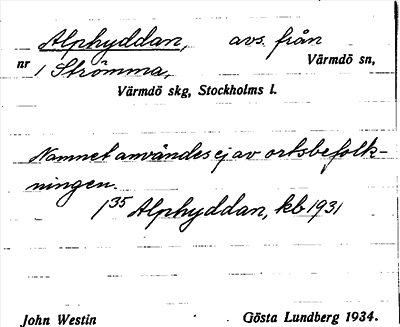 Alphyddan, avs. från
nr 1 Strömma, Värmdö sn,
Värmdö skg, Stockholms l.
Namnet användes ej av ortsbefolk-
ningen.
1³⁵ Alphyddan, kb 1931
John Westin Gösta Lundberg 1934.